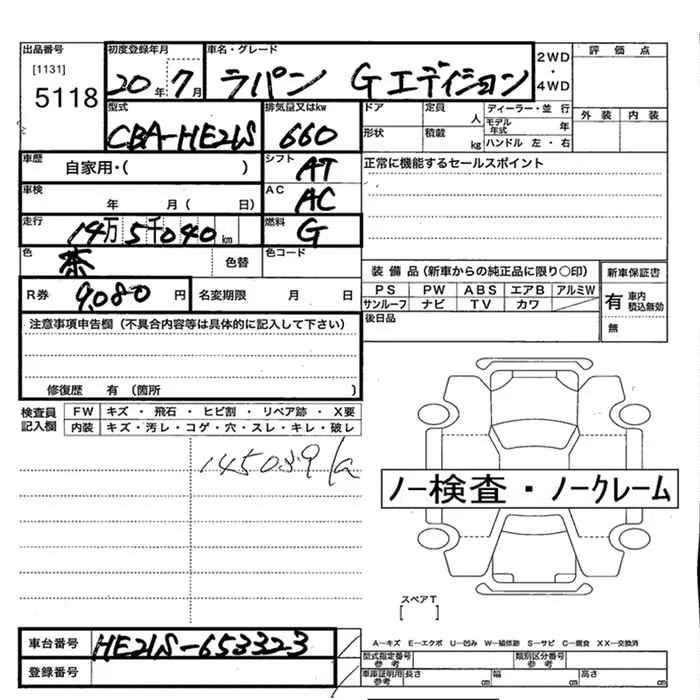 出品番号 初度登録年月 車名・グレード 2WD・4WD 評価点
[1131]
5118 20年7月 ラパン Gエディション
型式 排気量又はkw ドア 定員 人 ディーラー・並行 外装 内装
CBA-HE21S 660 形状 積載 kg モデル年式 年 ハンドル 左・右
車歴 自家用・( ) シフト AT 正常に機能するセールスポイント
車検 年 月( 日) AC AC
走行 14万5千040km 燃料 G
色 茶 色替 色コード
装備品(新車からの純正品に限り○印) 新車保証書
R券 9,080円 名変期限 月 日 PS PW ABS エアB アルミW 有 車内積込無効
サンルーフ ナビ TV カワ
注意事項申告欄(不具合内容等は具体的に記入して下さい) 後日品 無
修復歴 有(箇所 )
検査員記入欄 FW キズ・飛石・ヒビ割・リペア跡・X要
内装 キズ・汚レ・コゲ・穴・スレ・キレ・破レ
145039
ノー検査・ノークレーム
スペアT
[ ]
車台番号 HE21S-653323 A―キズ E―エクボ U―凹み W―補修跡 S―サビ C―腐食 XX―交換済
型式指定番号 参考 類別区分番号 参考
登録番号 車庫証明用 参考 長さ cm 幅 cm 高さ cm